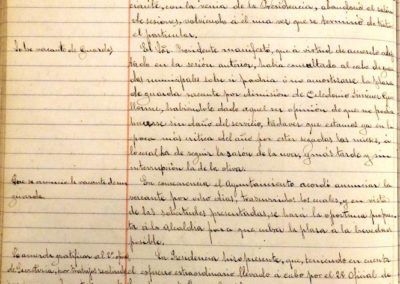 cueste, con la venia de la Presidencia, abandonó el salón
de sesiones, volviendo á él una vez que se terminó de tratar
el particular.
Sobre vacante de Guarda,
El Sr. Presidente manifestó, que á virtud de acuerdo adop-
tado en la sesión anterior, había consultado al cabo de guar-
das municipales sobre si podría ó no amortizarse la plaza
de guarda, vacante por dimisión de Celedonio Jiménez
habiéndole dado aquel su opinión de que no puede
hacerse sin daño del servicio, toda vez que estamos ya en la
época más crítica del año por estar segadas las mieses, á
lo cual ha de seguir la sazón de la uva, y más tarde y sin
interrupción la de la oliva.
Que se anuncie la vacante de un
guarda.
En consecuencia el Ayuntamiento acordó anunciar la
vacante por ocho días, transcurridos los cuales, y en vista
de las solicitudes presentadas, se hará la oportuna propues-
ta á la Alcaldía para que cubra la plaza á la brevedad
posible.
Se acuerda gratificar al 2º oficial
de Secretaría, por trabajos
La Presidencia hizo presente, que, teniendo en cuenta
el esfuerzo extraordinario llevado á cabo por el Sr. Oficial de